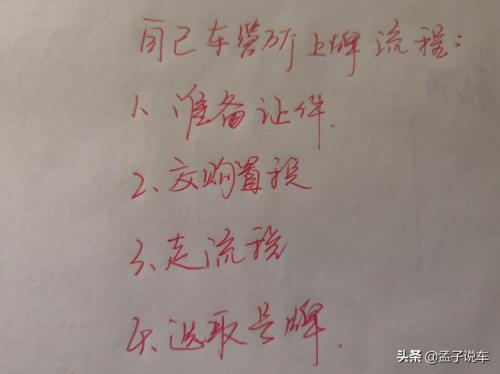 自己车管所上牌流程:
1、准备证件.
2、交购置税
3、走流程
4、选取号牌.
头条 @孟子说车